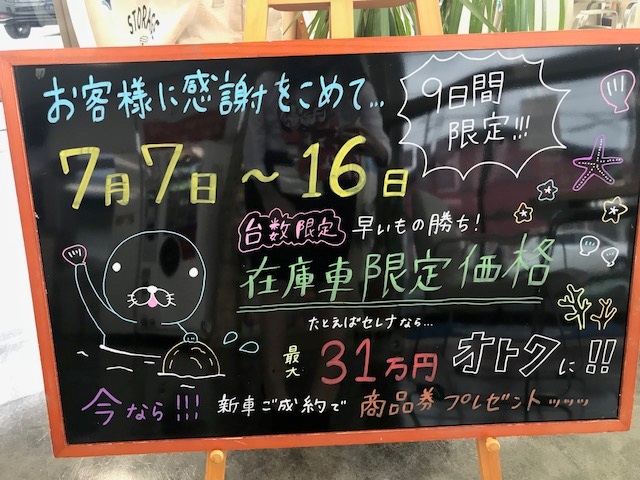 STORAGE
お客様に感謝をこめて...
9日間
限定!!!
7月7日～16日
台数限定 早いもの勝ち!
在庫車限定価格
たとえばセレナなら...
最大 31万円 オトクに!!
今なら!!! 新車ご成約で 商品券プレゼントッッッ